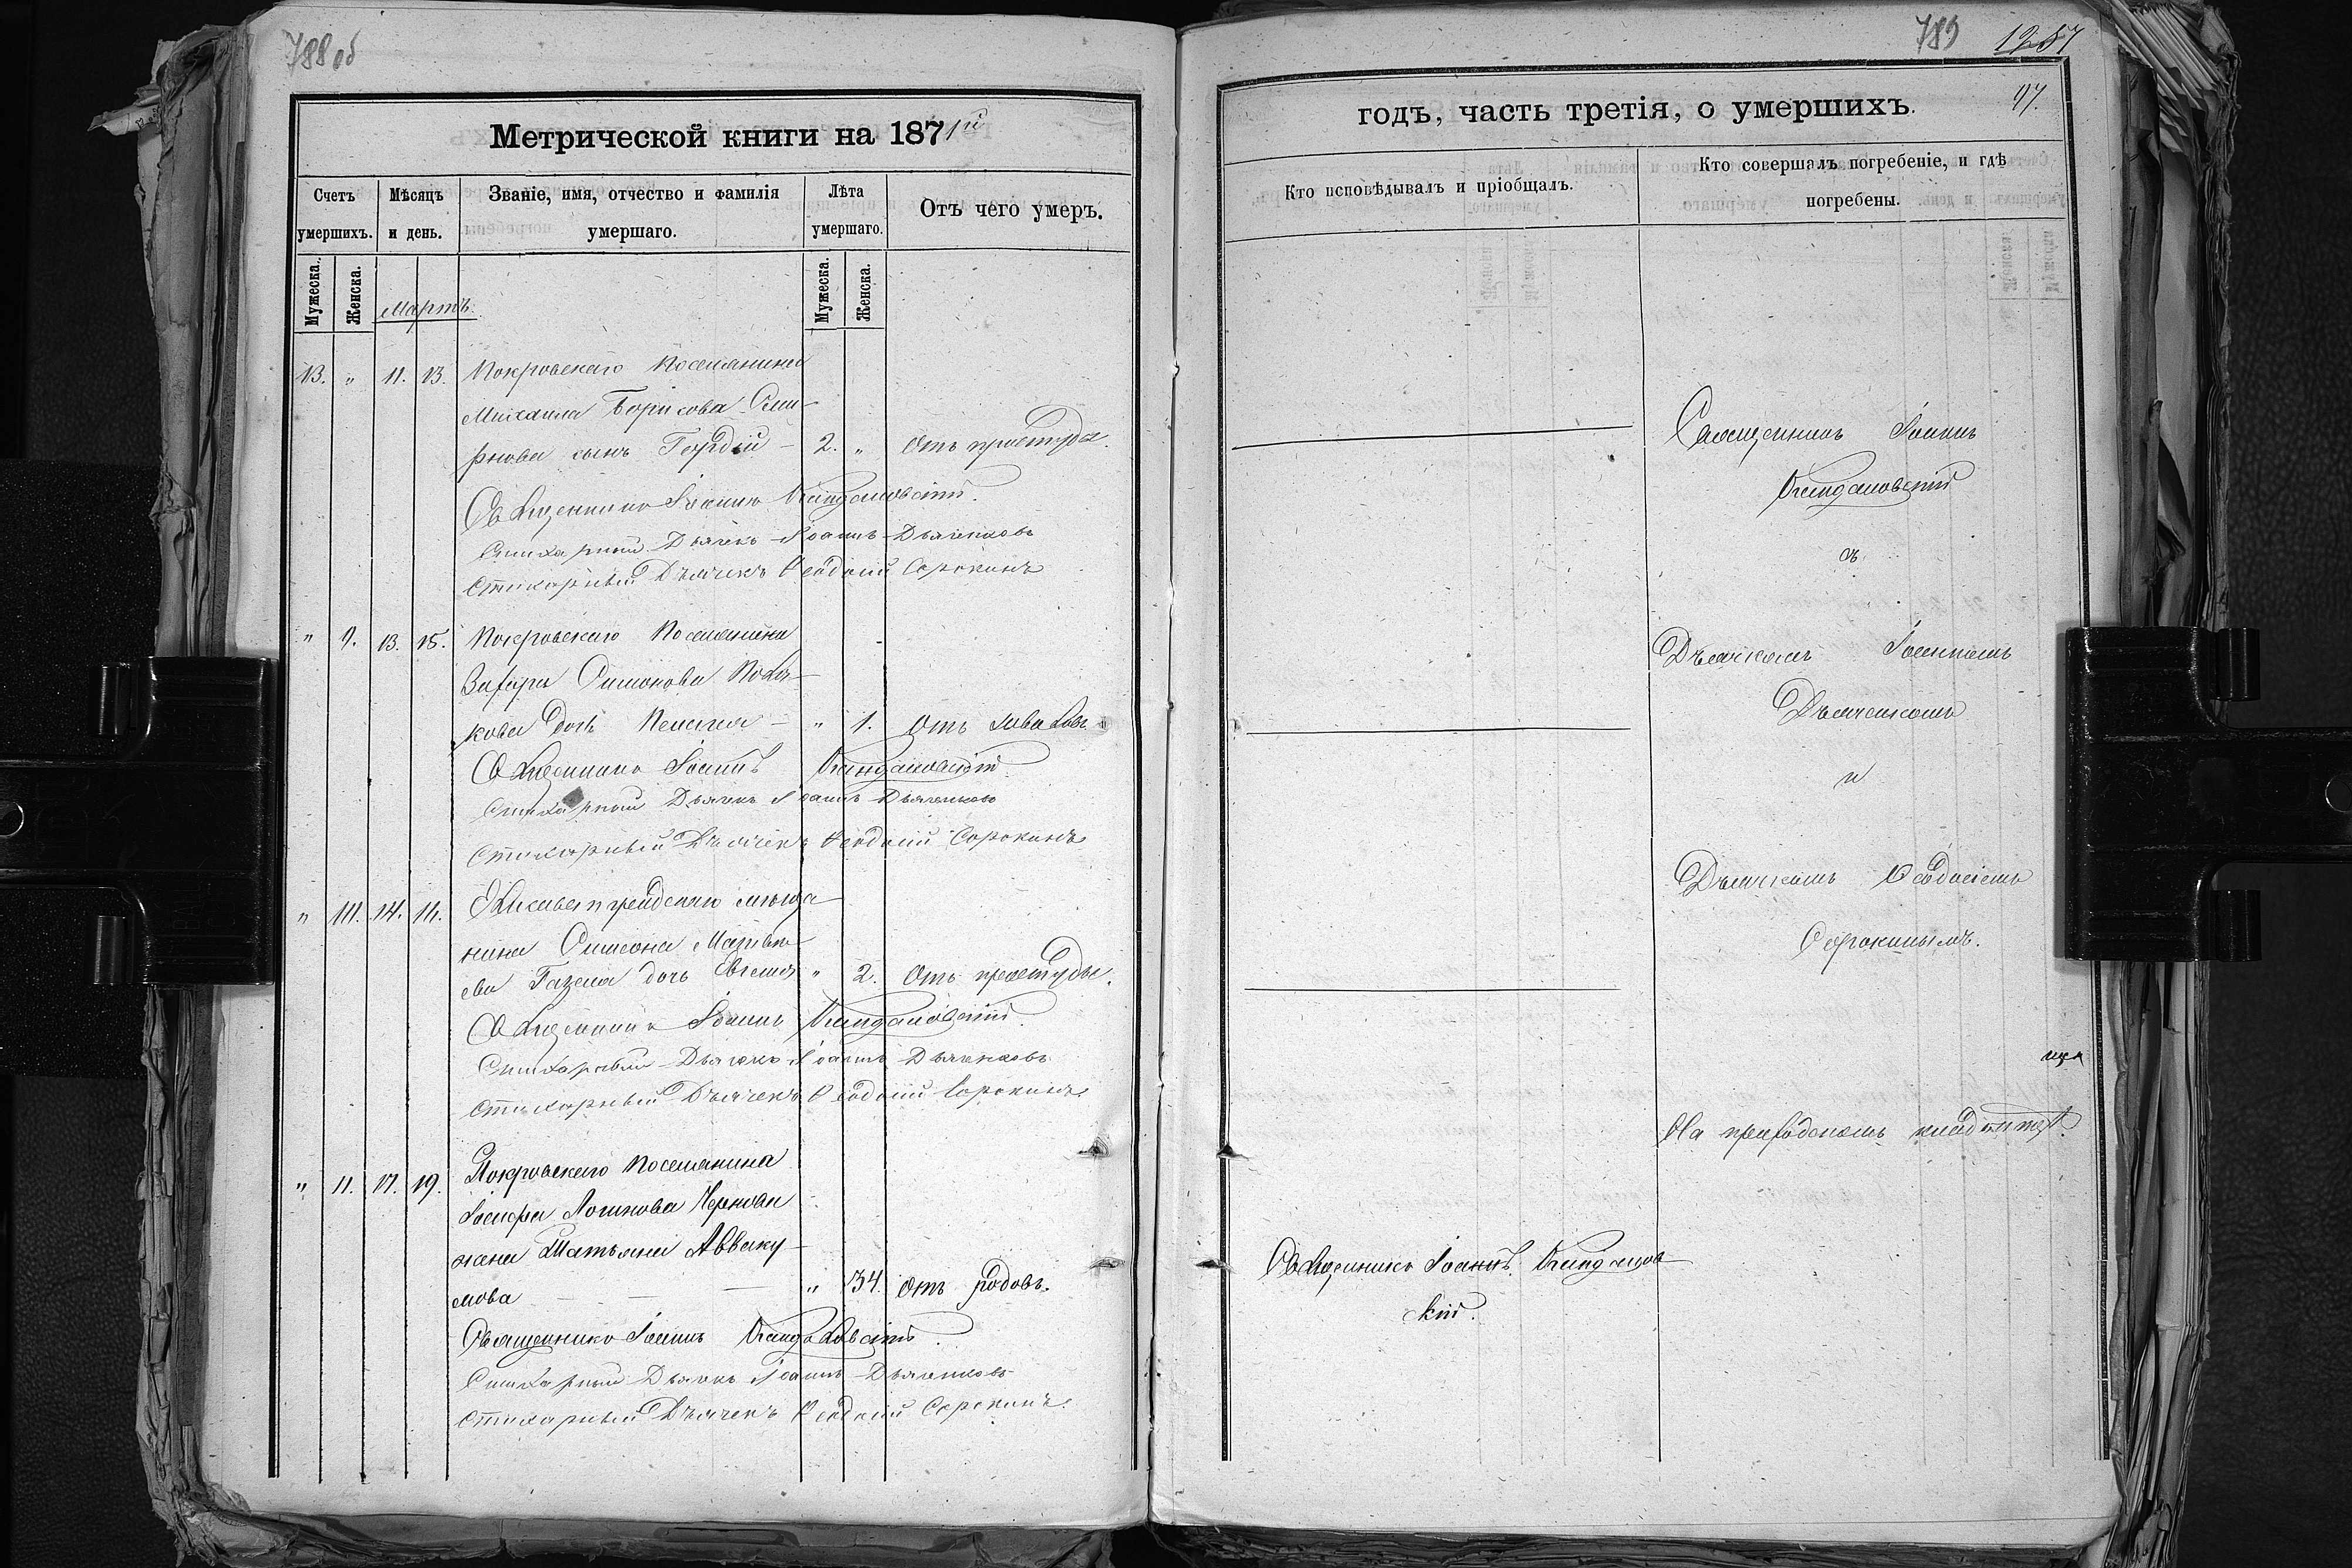 788 об
Метрической книги на 1871й
Счетъ умершихъ.
Мѣсяцъ и день.
Званіе, имя, отчество и фамилія умершаго.
Лѣта умершаго.
Отъ чего умеръ.
Мужеска.
Женска.
Мартъ.
Мужеска.
Женска.
13. " 11. 13. Покровскаго Поселянина
Михаила Борисова Сми-
рнова сынъ Гордій - 2. " Отъ простуды.
Священникъ Іоаннъ
Стихарный Дьячекъ Іоаннъ Дьяченковъ
Стихарный Дьячекъ Ѳеодосій Сорокинъ
" 9. 13. 15. Покровскаго Поселянина
Захара Симонова
дочь Пелагея - " 1. Отъ
Священникъ Іоаннъ
Стихарный Дьячекъ Іоаннъ Дьяченковъ
Стихарный Дьячекъ Ѳеодосій Сорокинъ
" 14. Елисаветградскаго мѣща-
нина Симеона
дочь Евгенія " 2. Отъ простуды.
Священникъ Іоаннъ
Стихарный Дьячекъ Іоаннъ Дьяченковъ
Стихарный Дьячекъ Ѳеодосій Сорокинъ
" 11. 17. 19. Покровскаго Поселянина
Іосифа Логинова
жена Татьяна Авваку-
мова - - - " 34. Отъ родовъ.
Священникъ Іоаннъ
Стихарный Дьячекъ Іоаннъ Дьяченковъ
Стихарный Дьячекъ Ѳеодосій Сорокинъ
789 1257
годъ, часть третія, о умершихъ. 97.
Кто исповѣдывалъ и пріобщалъ.
Кто совершалъ погребеніе, и гдѣ погребены.
Священникъ Іоаннъ
съ
Дьячкомъ Іоанномъ
Дьяченкомъ
и
Дьячкомъ Ѳеодосіемъ
Сорокинымъ.
На приходскомъ кладбищѣ.
Священникъ Іоаннъ
кій.